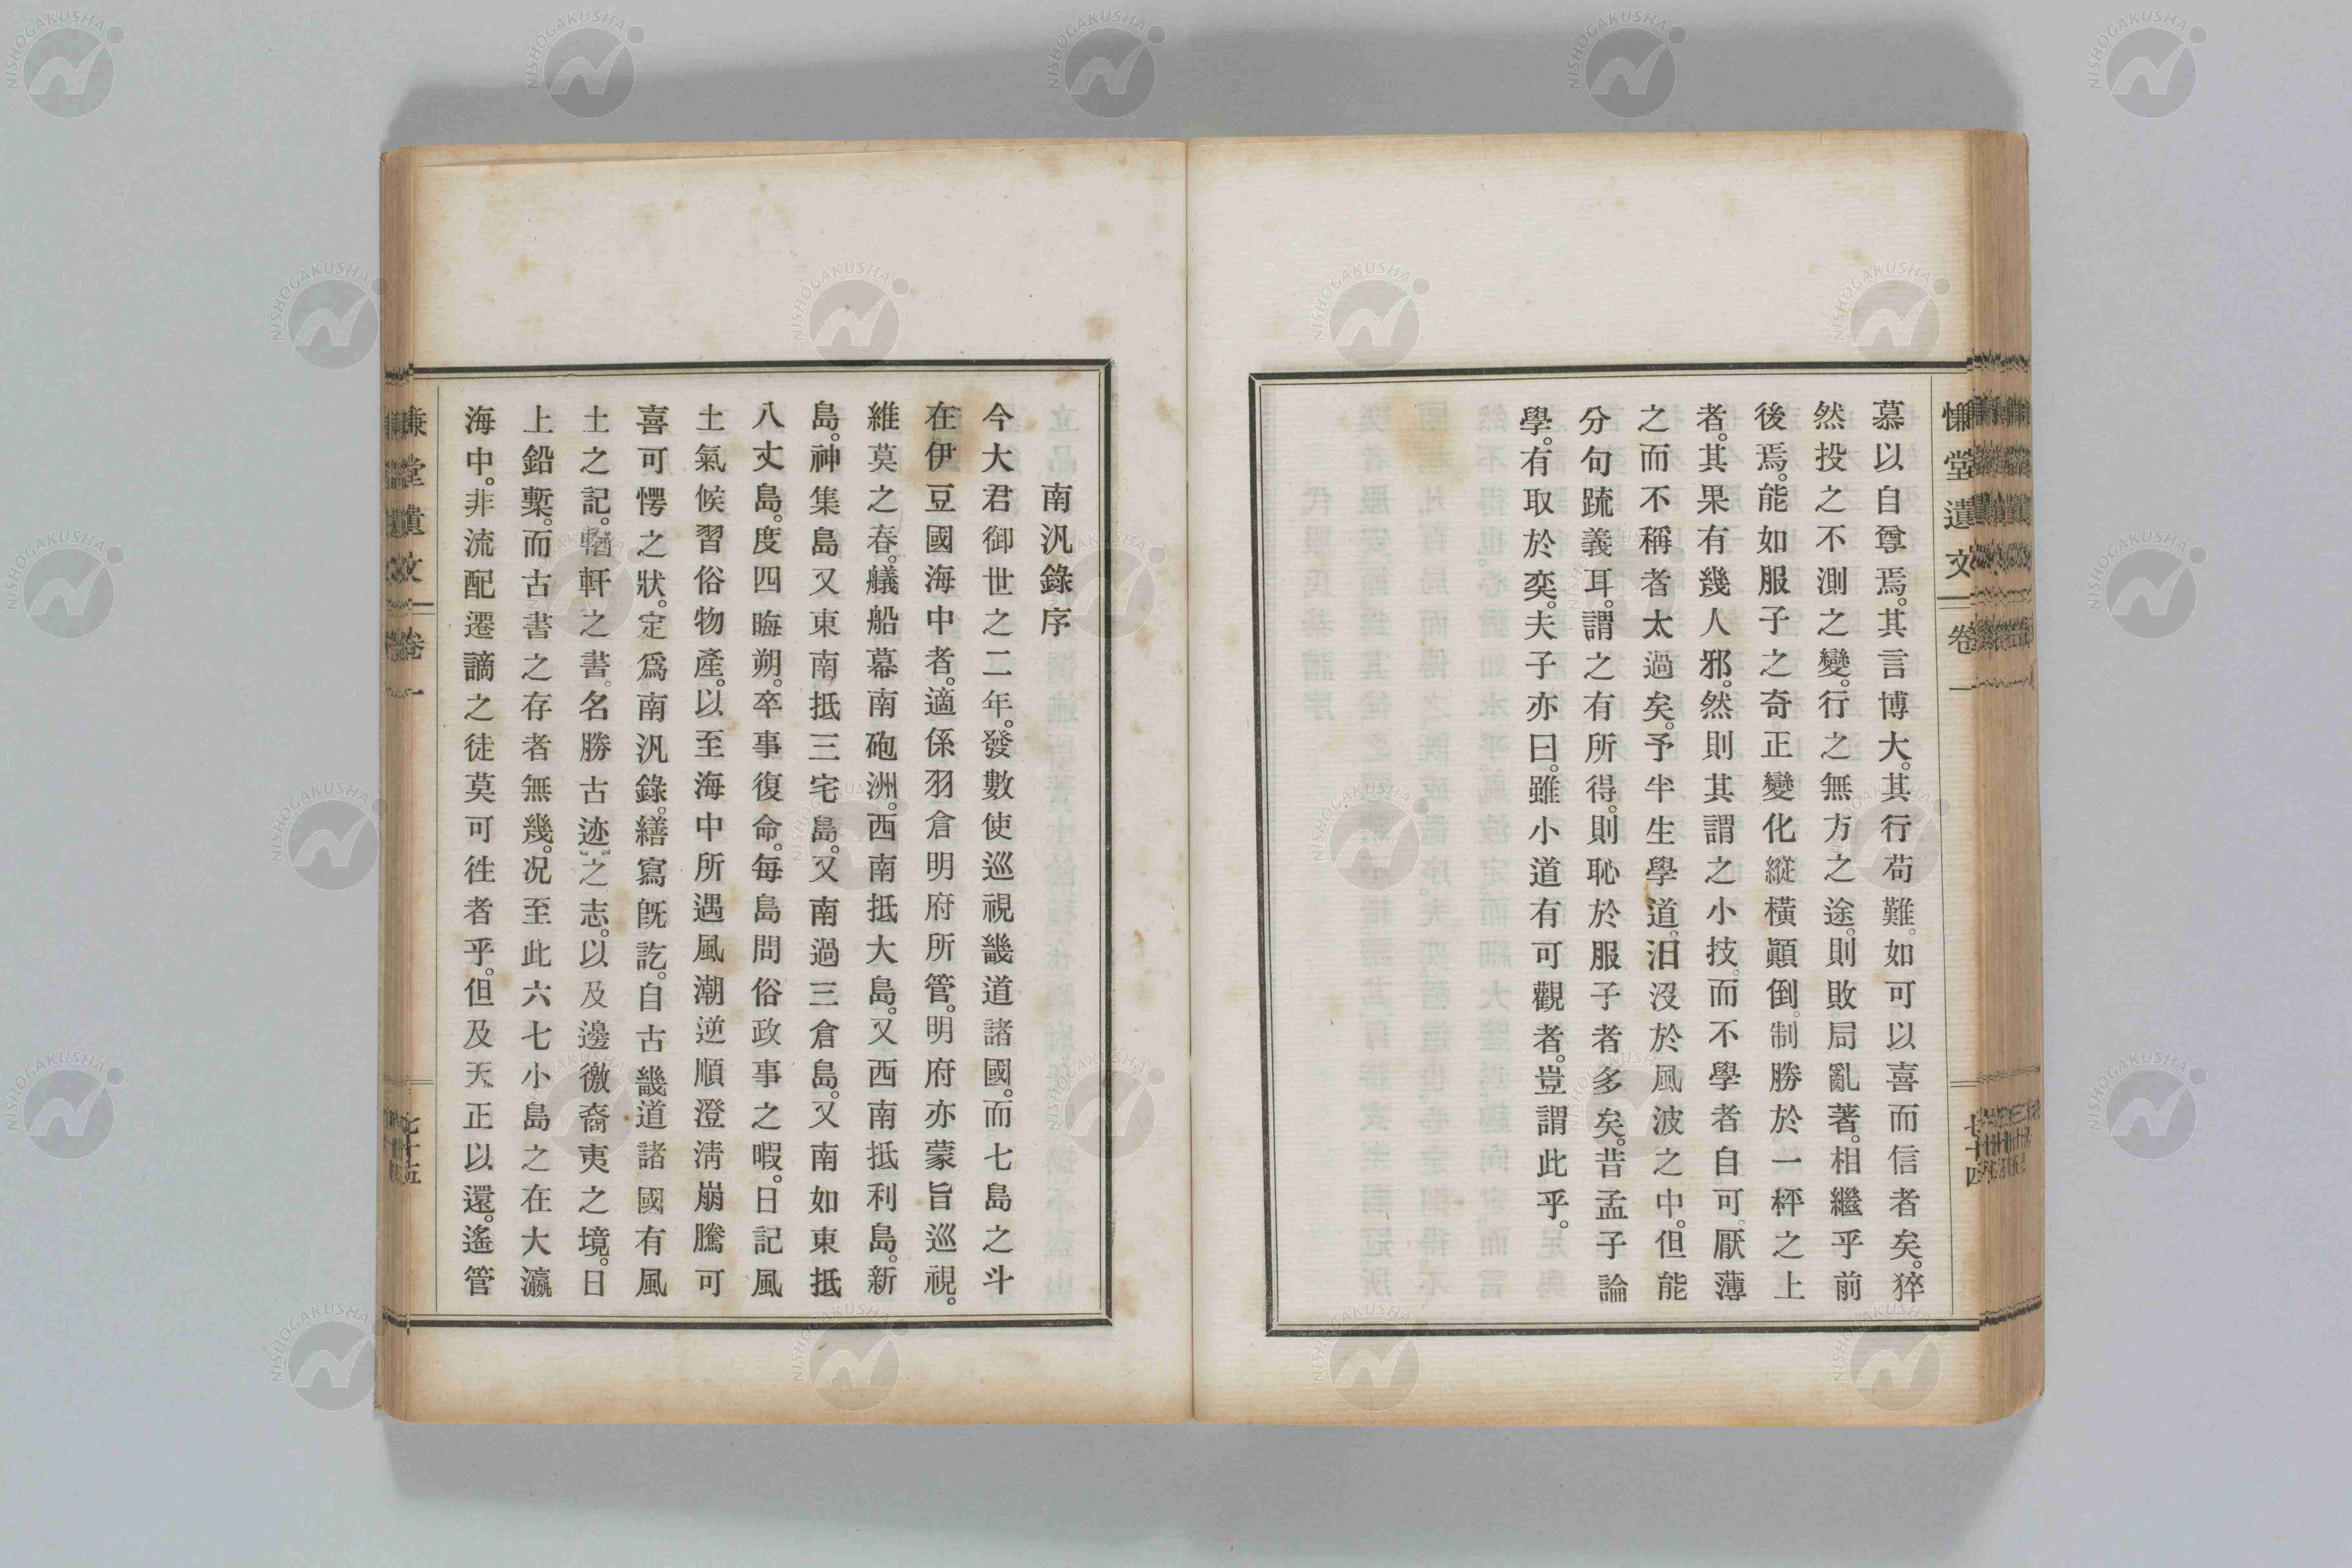 慊堂遺文 卷一 七十四
慕以自尊焉。其言博大。其行苟難。如可以喜而信者矣。猝
然投之不測之變。行之無方之途。則敗局亂著。相繼乎前
後焉。能如服子之奇正變化縱橫顚倒。制勝於一枰之上
者。其果有幾人邪。然則其謂之小技。而不學者自可。厭薄
之而不稱者太過矣。予半生學道。汨沒於風波之中。但能
分句疏義耳。謂之有所得。則恥於服子者多矣。昔孟子論
學。有取於奕。夫子亦曰。雖小道有可觀者。豈謂此乎。
南汎錄序
今大君御世之二年。發數使巡視畿道諸國。而七島之斗
在伊豆國海中者。適係羽倉明府所管。明府亦蒙旨巡視。
維莫之春。艤船幕南砲洲。西南抵大島。又西南抵利島。新
島。神集島又東南抵三宅島。又南過三倉島。又南如東抵
八丈島。度四晦朔。卒事復命。每島問俗政事之暇。日記風
土氣候習俗物產。以至海中所遇風潮逆順澄淸崩騰可
喜可愕之狀。定爲南汎錄。繕寫旣訖。自古畿道諸國有風
土之記。輶軒之書。名勝古迹之志。以及邊徼裔夷之境。日
上鉛槧。而古書之存者無幾。况至此六七小島之在大瀛
海中。非流配遷謫之徒莫可徃者乎。但及天正以還。遙管
慊堂遺文 卷一 七十五
NISHOGAKUSHA